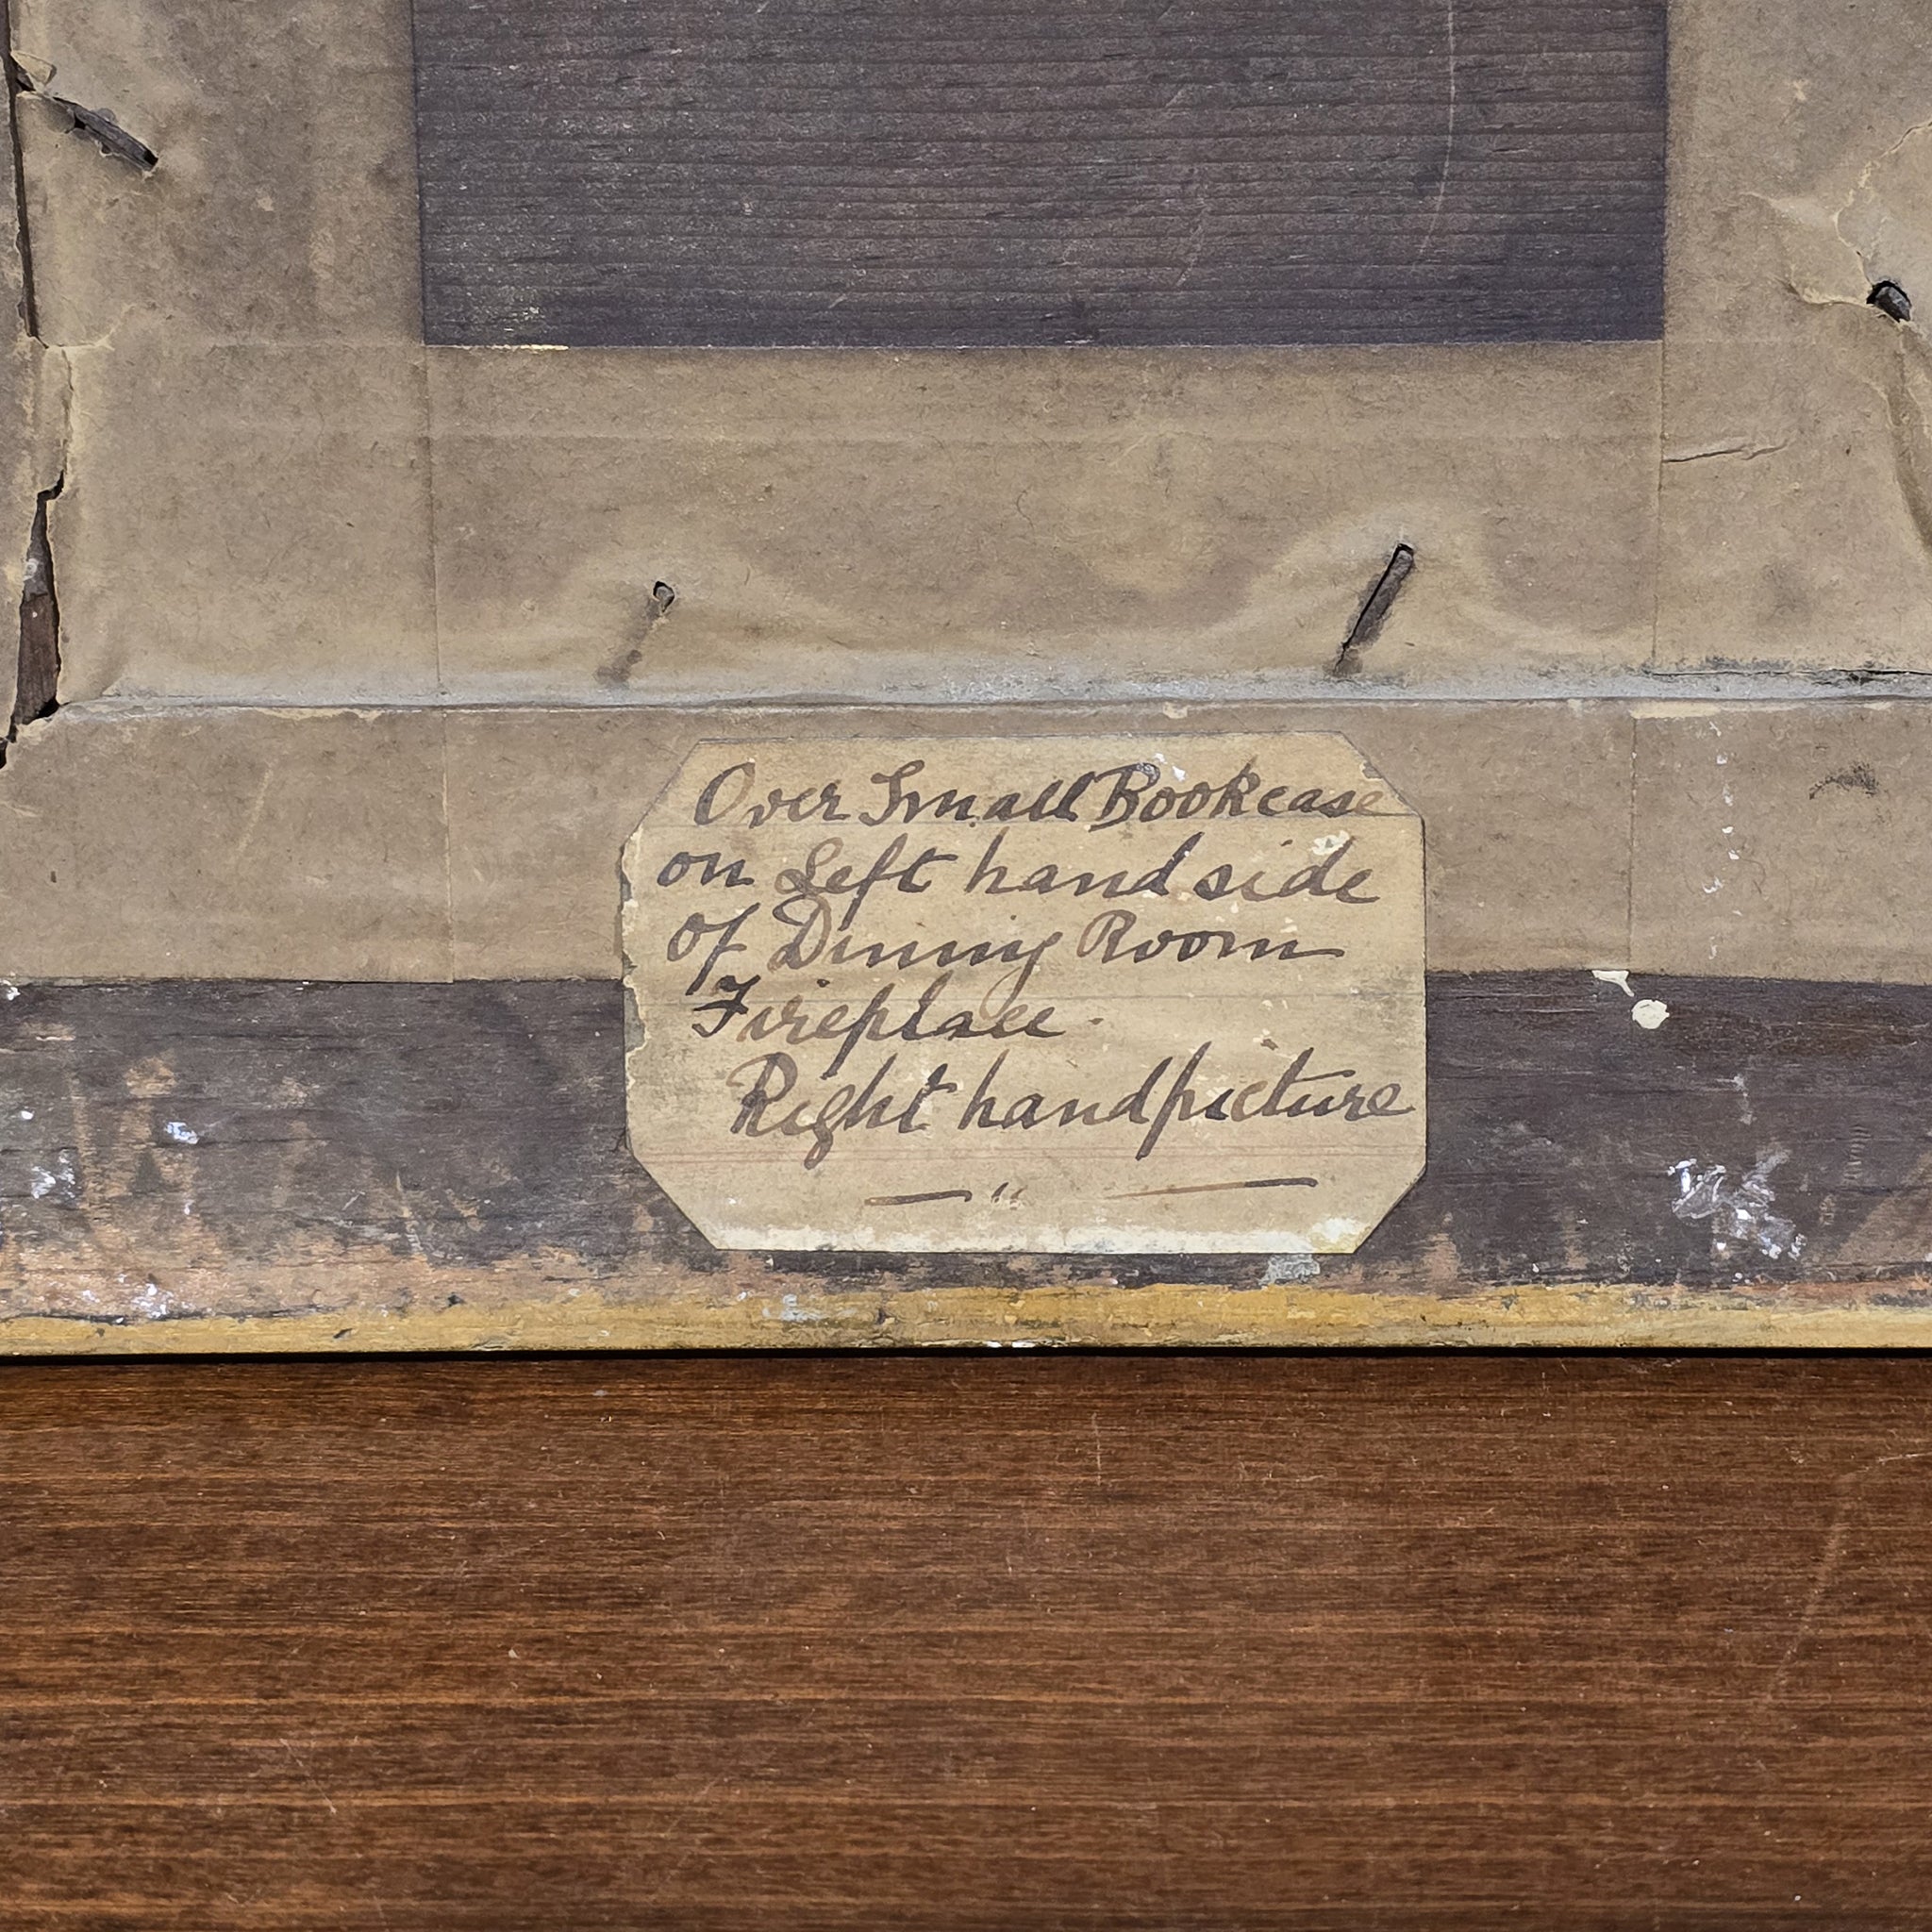 Over Small Bookcase
on Left hand side
of Dining Room
Fireplace.
Right hand picture
— " —